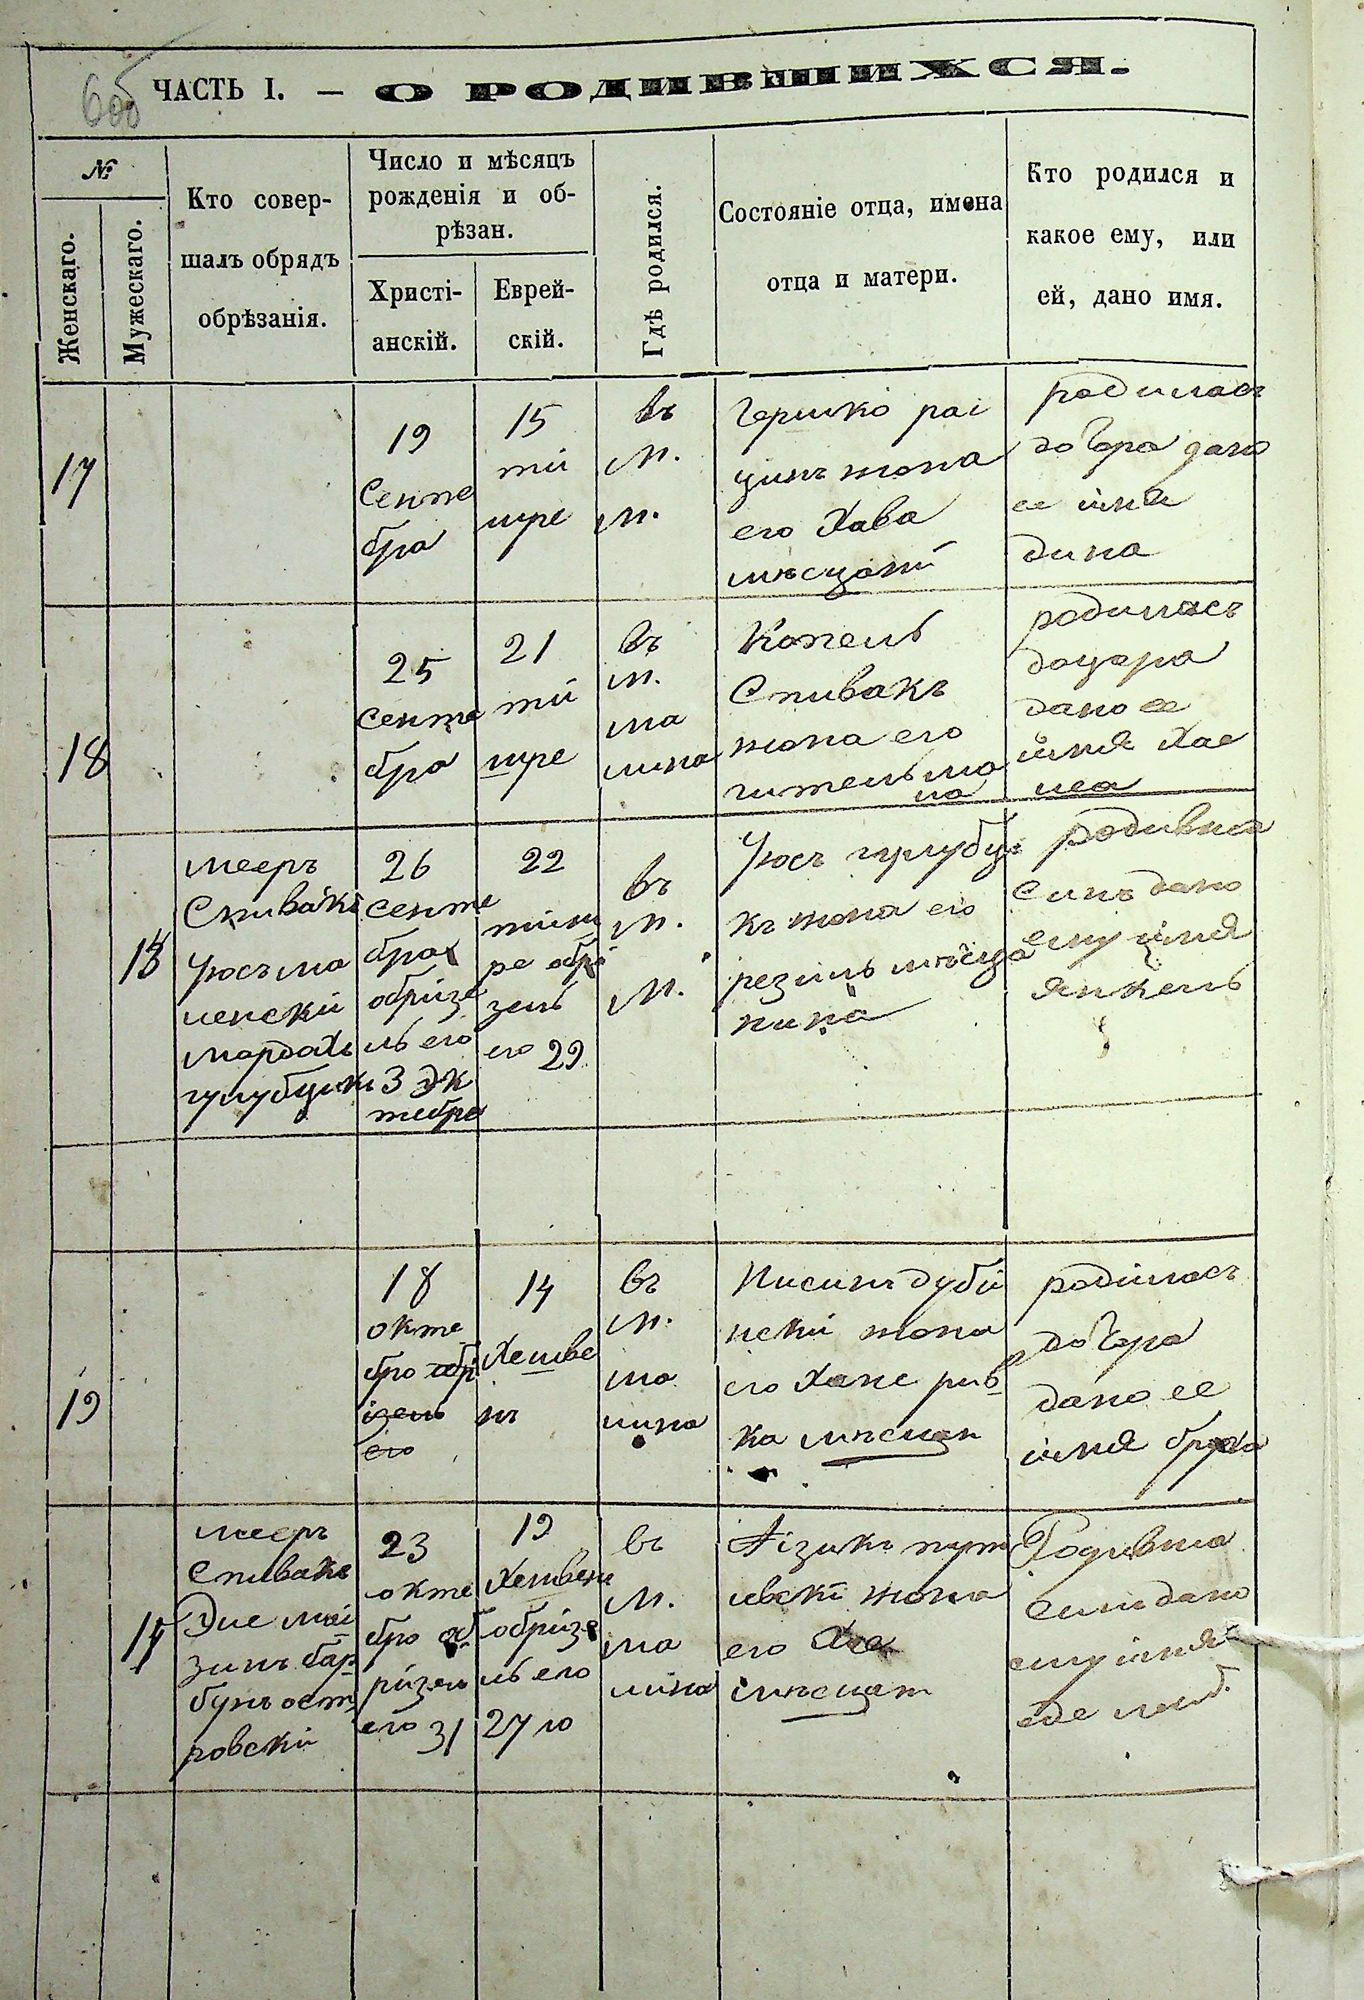 6об
ЧАСТЬ I. — О РОДИВШИХСЯ.
№
Женскаго.
Мужескаго.
Кто совер-
шалъ обрядъ
обрѣзанія.
Число и мѣсяцъ
рожденія и об-
рѣзан.
Христі-
анскій.
Еврей-
скій.
Гдѣ родился.
Состояніе отца, имена
отца и матери.
Кто родился и
какое ему, или
ей, дано имя.
17
19
Сенте
бра
15
тій
шре
въ
м.
м.
Гершко рай
цинъ жона
его Хава
мѣсцаний
родилась
дочера дано
ее імя
дина
18
25
сенте
бра
21
тій
шре
въ
м.
ма
лина
Копель
Спивакъ
жона его
гительма
на
родилась
доцера
дано ее
імня Хае
леа
13
мееръ
Спивакъ
Юсъ ма
ленский
мордахъ
гулубцикъ
26
сенте
бра
обрізе
нь его
3 Эк
тебра
22
тіши
ре обрі
зень
его 29
въ
м.
м.
Юсъ гулубци
къ жона его
резиль мѣсца
нина
родивша
синъ дано
ему імя
янкель
19
18
окте
бро обр
ізень
его
14
Хешве
нъ
въ
м.
ма
лина
Нисинъ дубій
нскій жона
его Хане рив
ка мѣсцан
родилась
дочера
дано ее
імня бруха
14
мееръ
спивакъ
Эле мой
зинъ бар
бунъ ост
ровский
23
окте
бро об
різень
его 31
19
Хешвень
обрізе
нь его
27 го
въ
м.
ма
лина
Айзикъ пут
левскі жона
его Хае
мѣсцан
Родивша
синъ дано
ему імня
еде лейб.